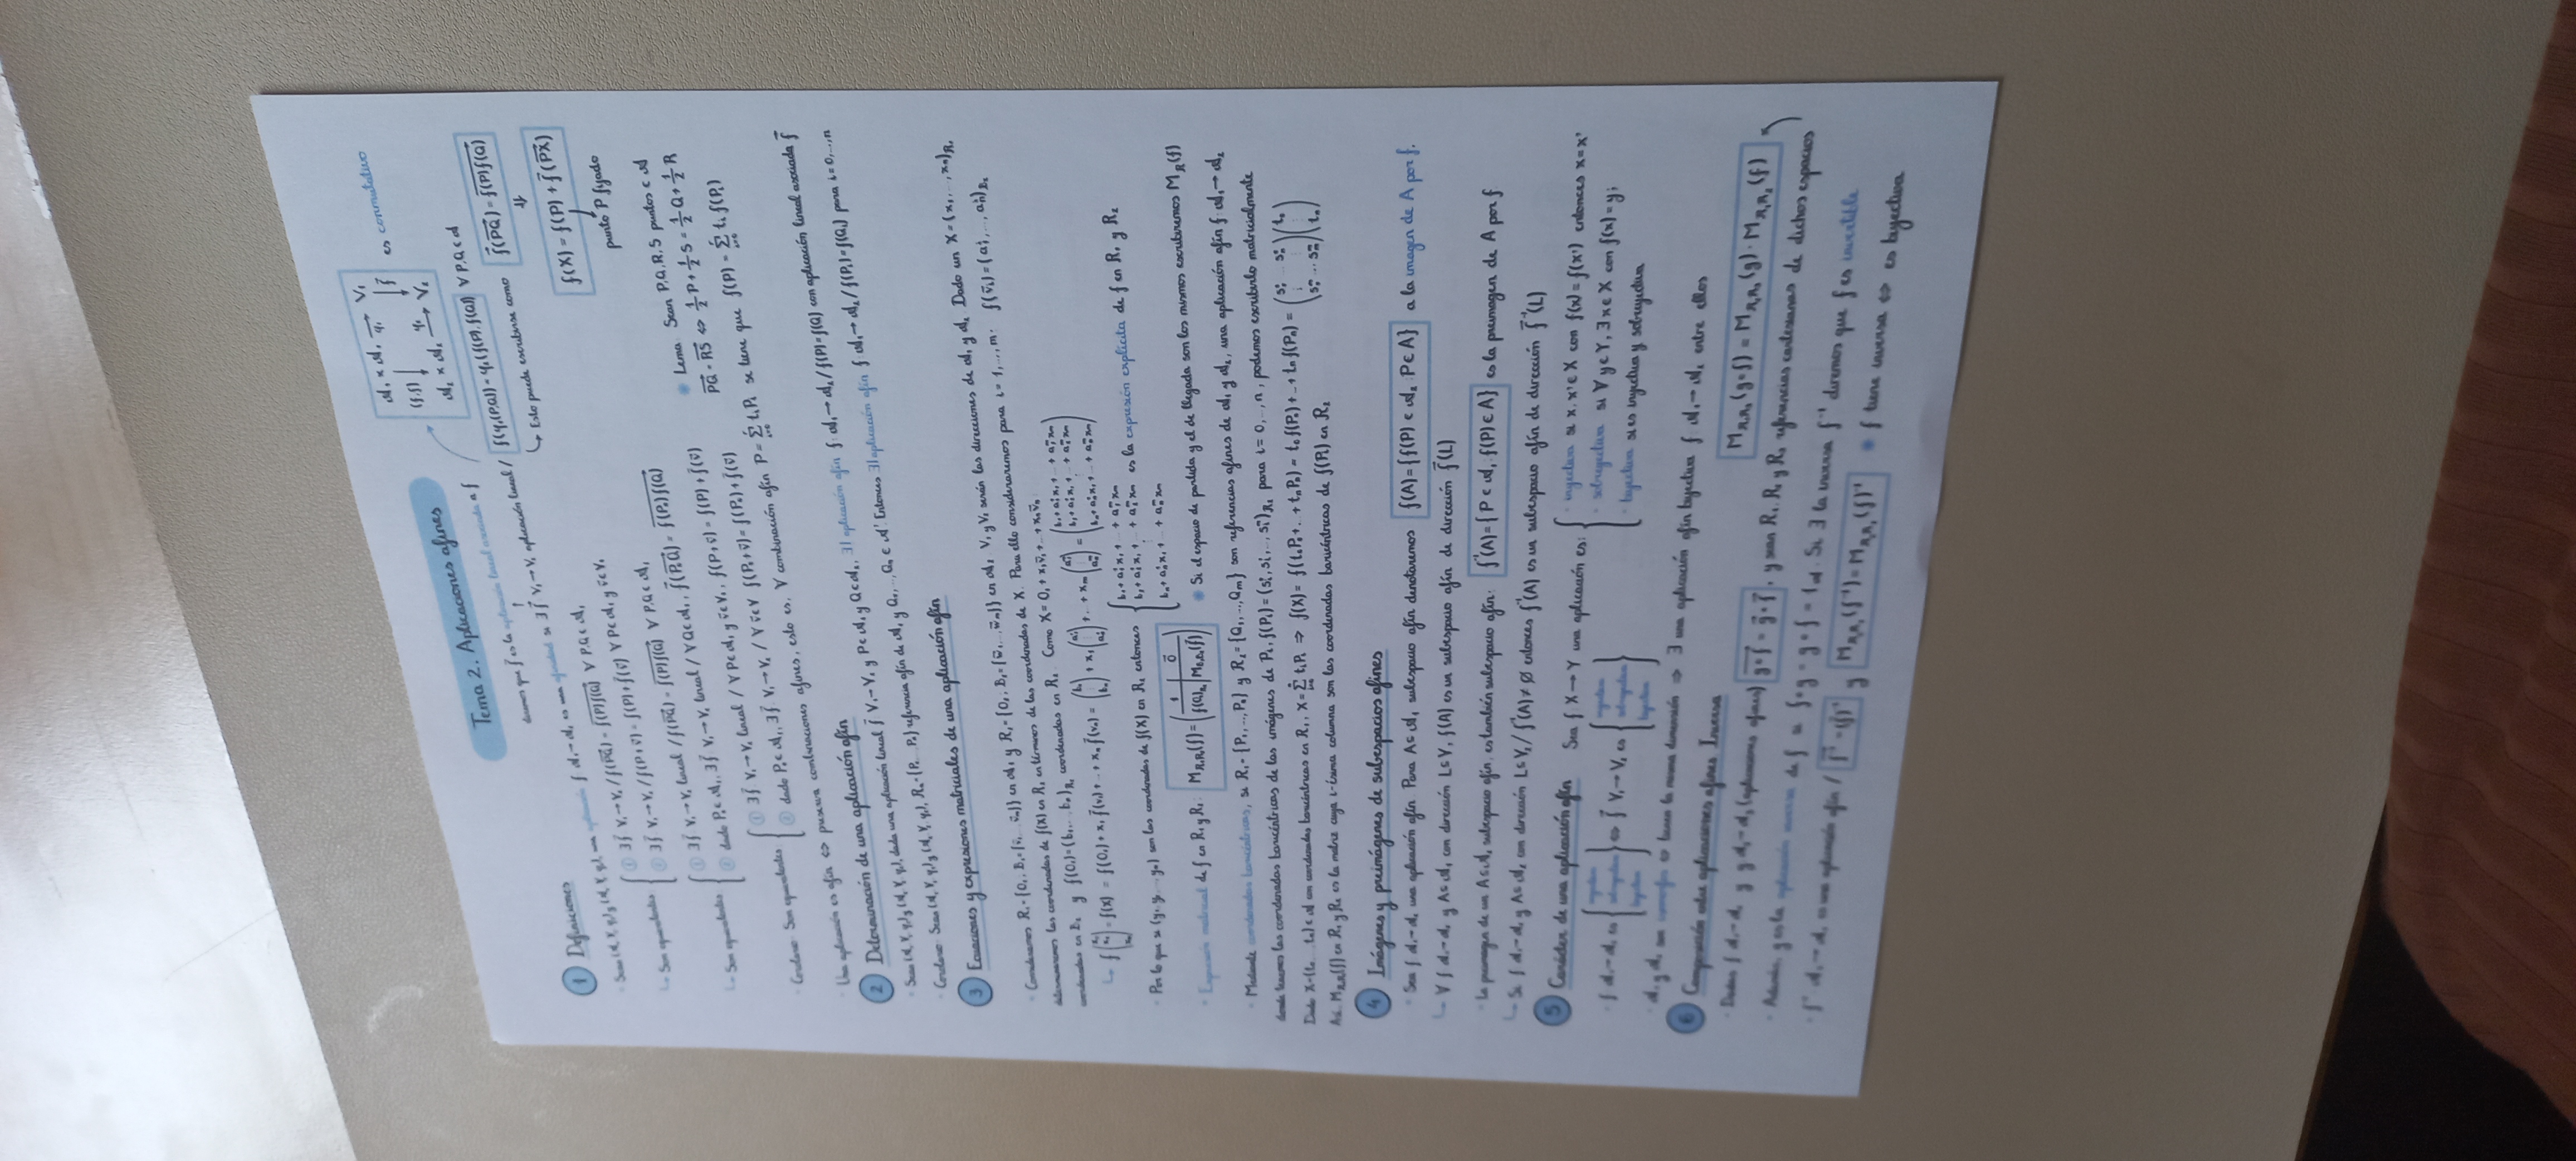 Tema 2. Aplicaciones afines
𝒜₁ × 𝒜₁ →φ₁ V₁
(f,f) ↓ ↓ f⃗ es conmutativo
𝒜₂ × 𝒜₂ →φ₂ V₂
diremos que f⃗ es la aplicación lineal asociada a f
1 Definiciones
Sean (𝒜, V, φ) y (𝒜, V, φ), una aplicación f: 𝒜₁→𝒜₂ es una afinidad si ∃ f⃗: V₁→V₂ aplicación lineal / f⃗(φ₁(P,Q)) = φ₂(f(P), f(Q)) ∀ P,Q ∈ 𝒜
↳ Esto puede escribirse como f⃗(PQ) = f(P)f(Q)
⇓
f(X) = f(P) + f⃗(PX)
punto P fijado
↳ Son equivalentes
① ∃ f⃗: V₁→V₂ / f⃗(PQ) = f(P)f(Q) ∀ P,Q ∈ 𝒜₁
② ∃ f⃗: V₁→V₂ / f(P+v⃗) = f(P)+f⃗(v⃗) ∀ P∈𝒜₁ y v⃗∈V₁
↳ Son equivalentes
① ∃ f⃗: V₁→V₂ lineal / f⃗(PQ) = f(P)f(Q) ∀ P,Q ∈ 𝒜₁
② dado P₀∈𝒜₁, ∃ f⃗: V₁→V₂ lineal / ∀ Q∈𝒜₁, f⃗(P₀Q) = f(P₀)f(Q)
* Lema: Sean P,Q,R,S puntos ∈ 𝒜
PQ = RS ⇔ 1/2 P + 1/2 S = 1/2 Q + 1/2 R
· Corolario: Son equivalentes
① ∃ f⃗: V₁→V₂ lineal / ∀ P∈𝒜₁ y v⃗∈V₁, f(P+v⃗) = f(P) + f⃗(v⃗)
② dado P₀∈𝒜₁, ∃ f⃗: V₁→V₂ / ∀ v⃗∈V f(P₀+v⃗) = f(P₀)+f⃗(v⃗)
· Una aplicación es afín ⇔ preserva combinaciones afines, esto es, ∀ combinación afín P = Σ tᵢPᵢ se tiene que f(P) = Σ tᵢ f(Pᵢ)
2 Determinación de una aplicación afín
· Sean (𝒜, V, φ) y (𝒜, V, φ), dada una aplicación lineal f⃗: V₁→V₂ y P∈𝒜₁ y Q∈𝒜₂, ∃! aplicación afín f: 𝒜₁→𝒜₂ / f(P)=f(Q) con aplicación lineal asociada f⃗
· Corolario: Sean (𝒜, V, φ) y (𝒜, V, φ), R = {P₀...Pₙ} referencia afín de 𝒜₁ y Q₀,...,Qₙ ∈ 𝒜'. Entonces ∃! aplicación afín f: 𝒜₁→𝒜₂ / f(Pᵢ)=f(Qᵢ) para i=0,...,n
3 Ecuaciones y expresiones matriciales de una aplicación afín
· Consideramos R₁={O₁; B₁={v⃗₁...v⃗ₙ}} en 𝒜₁ y R₂={O₂; B₂={w⃗₁...w⃗ₘ}} en 𝒜₂. V₁ y V₂ serán las direcciones de 𝒜₁ y 𝒜₂. Dado un X=(x₁,...,xₙ)R₁
determinaremos las coordenadas de f(X) en R₂ en términos de las coordenadas de X. Para ello consideraremos para i=1,...,m: f(v⃗ᵢ)=(aⁱ₁,...,aⁱₙ)B₂
coordenadas en B₂ y f(O₁)=(b₁,...bₙ)R₂ coordenadas en R₂. Como X=O₁+x₁v⃗₁+...+xₙv⃗ₙ
↳ f(x₁ ⋮ xₘ) = f(X) = f(O₁)+x₁f⃗(v₁)+...+xₙf⃗(vₙ) = (b₁ ⋮ bₙ) + x₁(a¹₁ ⋮ a¹ₙ) +...+ xₘ(aᵐ₁ ⋮ aᵐₙ) = (b₁+a¹₁x₁+...+aᵐ₁xₘ ⋮ bₙ+a¹ₙx₁+...+aᵐₙxₘ)
· Por lo que si (y₁,y₂,...,yₙ) son las coordenadas de f(X) en R₂ entonces { b₁+a¹₁x₁+...+aᵐ₁xₘ, b₂+a¹₂x₁+...+aᵐ₂xₘ, ⋮ bₙ+a¹ₙx₁+...+aᵐₙxₘ es la expresión explícita de f en R₁ y R₂
· Expresión matricial de f en R₁ y R₂: M R₁R₂(f) = (1 | 0⃗ / f(O₁)R₂ | M B₁B₂(f⃗))
* Si el espacio de partida y el de llegada son los mismos escribiremos M R(f)
· Mediante coordenadas baricéntricas, si R₁={P₁,...,Pₙ} y R₂={Q₁,...,Qₘ} son referencias afines de 𝒜₁ y 𝒜₂, una aplicación afín f: 𝒜₁→𝒜₂
donde tenemos las coordenadas baricéntricas de las imágenes de Pᵢ, f(Pᵢ)=(sⁱ₀,sⁱ₁,...,sⁱₘ)R₂ para i=0,...,n, podemos escribirlo matricialmente
Dado X=(t₀...tₙ)∈𝒜 con coordenadas baricéntricas en R₁, X=Σ tᵢPᵢ ⇒ f(X) = f(t₀P₀+...+tₙPₙ) = t₀f(P₀)+...+tₙf(Pₙ) = (s⁰₀ ... sⁿ₀ ⋮ s⁰ₘ ... sⁿₘ)(t₀ ⋮ tₙ)
Así, M R₁R₂(f) en R₁ y R₂ es la matriz cuya i-ésima columna son las coordenadas baricéntricas de f(Pᵢ) en R₂
4 Imágenes y preimágenes de subespacios afines
· Sea f: 𝒜₁→𝒜₂ una aplicación afín. Para A⊆𝒜₁ subespacio afín denotaremos f(A)={f(P)∈𝒜₂: P∈A} a la imagen de A por f.
↳ ∀ f: 𝒜₁→𝒜₂ y A⊆𝒜₁ con dirección L⊆V, f(A) es un subespacio afín de dirección f⃗(L)
· La preimagen de un A⊆𝒜₂ subespacio afín, es también subespacio afín: f⁻¹(A)={P∈𝒜₁: f(P)∈A} es la preimagen de A por f
↳ Si f: 𝒜₁→𝒜₂ y A⊆𝒜₂ con dirección L⊆V₂ / f⁻¹(A)≠∅ entonces f⁻¹(A) es un subespacio afín de dirección f⃗⁻¹(L)
5 Carácter de una aplicación afín
Sea f: X→Y una aplicación es:
· inyectiva si x,x'∈X con f(x)=f(x') entonces x=x'
· sobreyectiva si ∀ y∈Y, ∃ x∈X con f(x)=y;
· biyectiva si es inyectiva y sobreyectiva
· f: 𝒜₁→𝒜₂ es {inyectiva sobreyectiva biyectiva} ⇔ f⃗: V₁→V₂ es {inyectiva sobreyectiva biyectiva}
· 𝒜₁ y 𝒜₂ son isomorfos ⇔ tienen la misma dimensión ⇒ ∃ una aplicación afín biyectiva f: 𝒜₁→𝒜₂ entre ellos
6 Composición entre aplicaciones afines. Inversa
M R₁R₃(g∘f) = M R₂R₃(g) · M R₁R₂(f)
· Dadas f: 𝒜₁→𝒜₂ y g: 𝒜₂→𝒜₃ (aplicaciones afines) g∘f = g⃗∘f⃗, y sean R₁, R₂ y R₃ referencias cartesianas de dichos espacios
· Además, g es la aplicación inversa de f si f∘g = g∘f = 1𝒜. Si ∃ la inversa f⁻¹ diremos que f es invertible
· f⁻¹: 𝒜₂→𝒜₁ es una aplicación afín / f⃗⁻¹ = (f⃗)⁻¹ y M R₂R₁(f⁻¹) = M R₁R₂(f)⁻¹ * f tiene inversa ⇔ es biyectiva